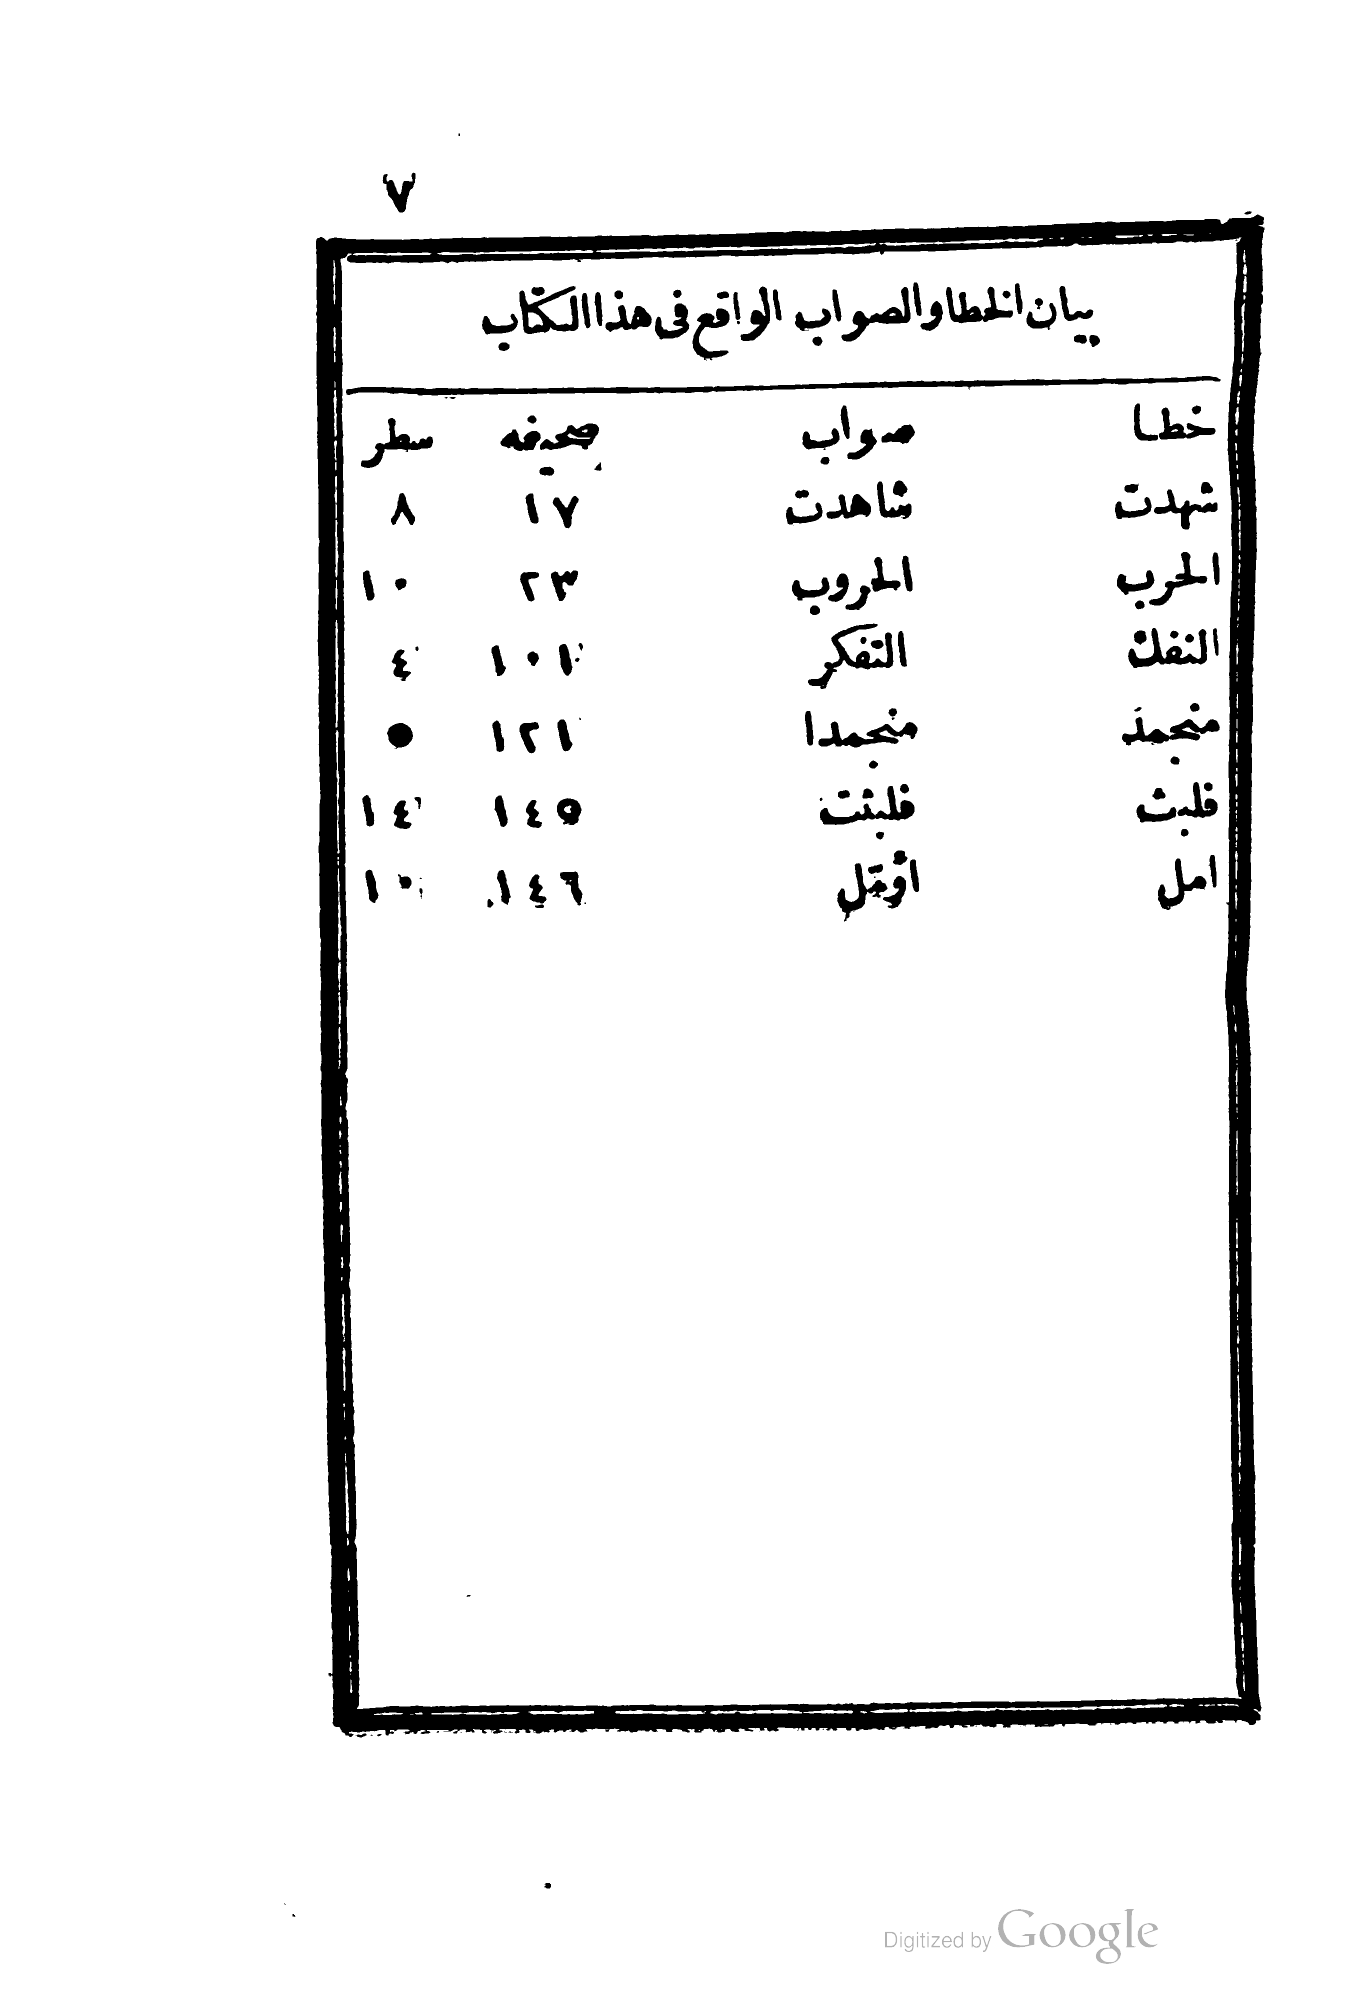 ٧
بيان الخطا والصواب الواقع فى هذا الكتاب
خطا صواب صحيفه سطر
شهدت شاهدت ١٧ ٨
الحرب الحروب ٢٣ ١٠
التفكر ١٠١ ٤
منجمد منجمدا ١٢١ ٥
فلبث فلبثت ١٤٥ ١٤
امل أومّل ١٤٦ ١٠
Digitized by Google